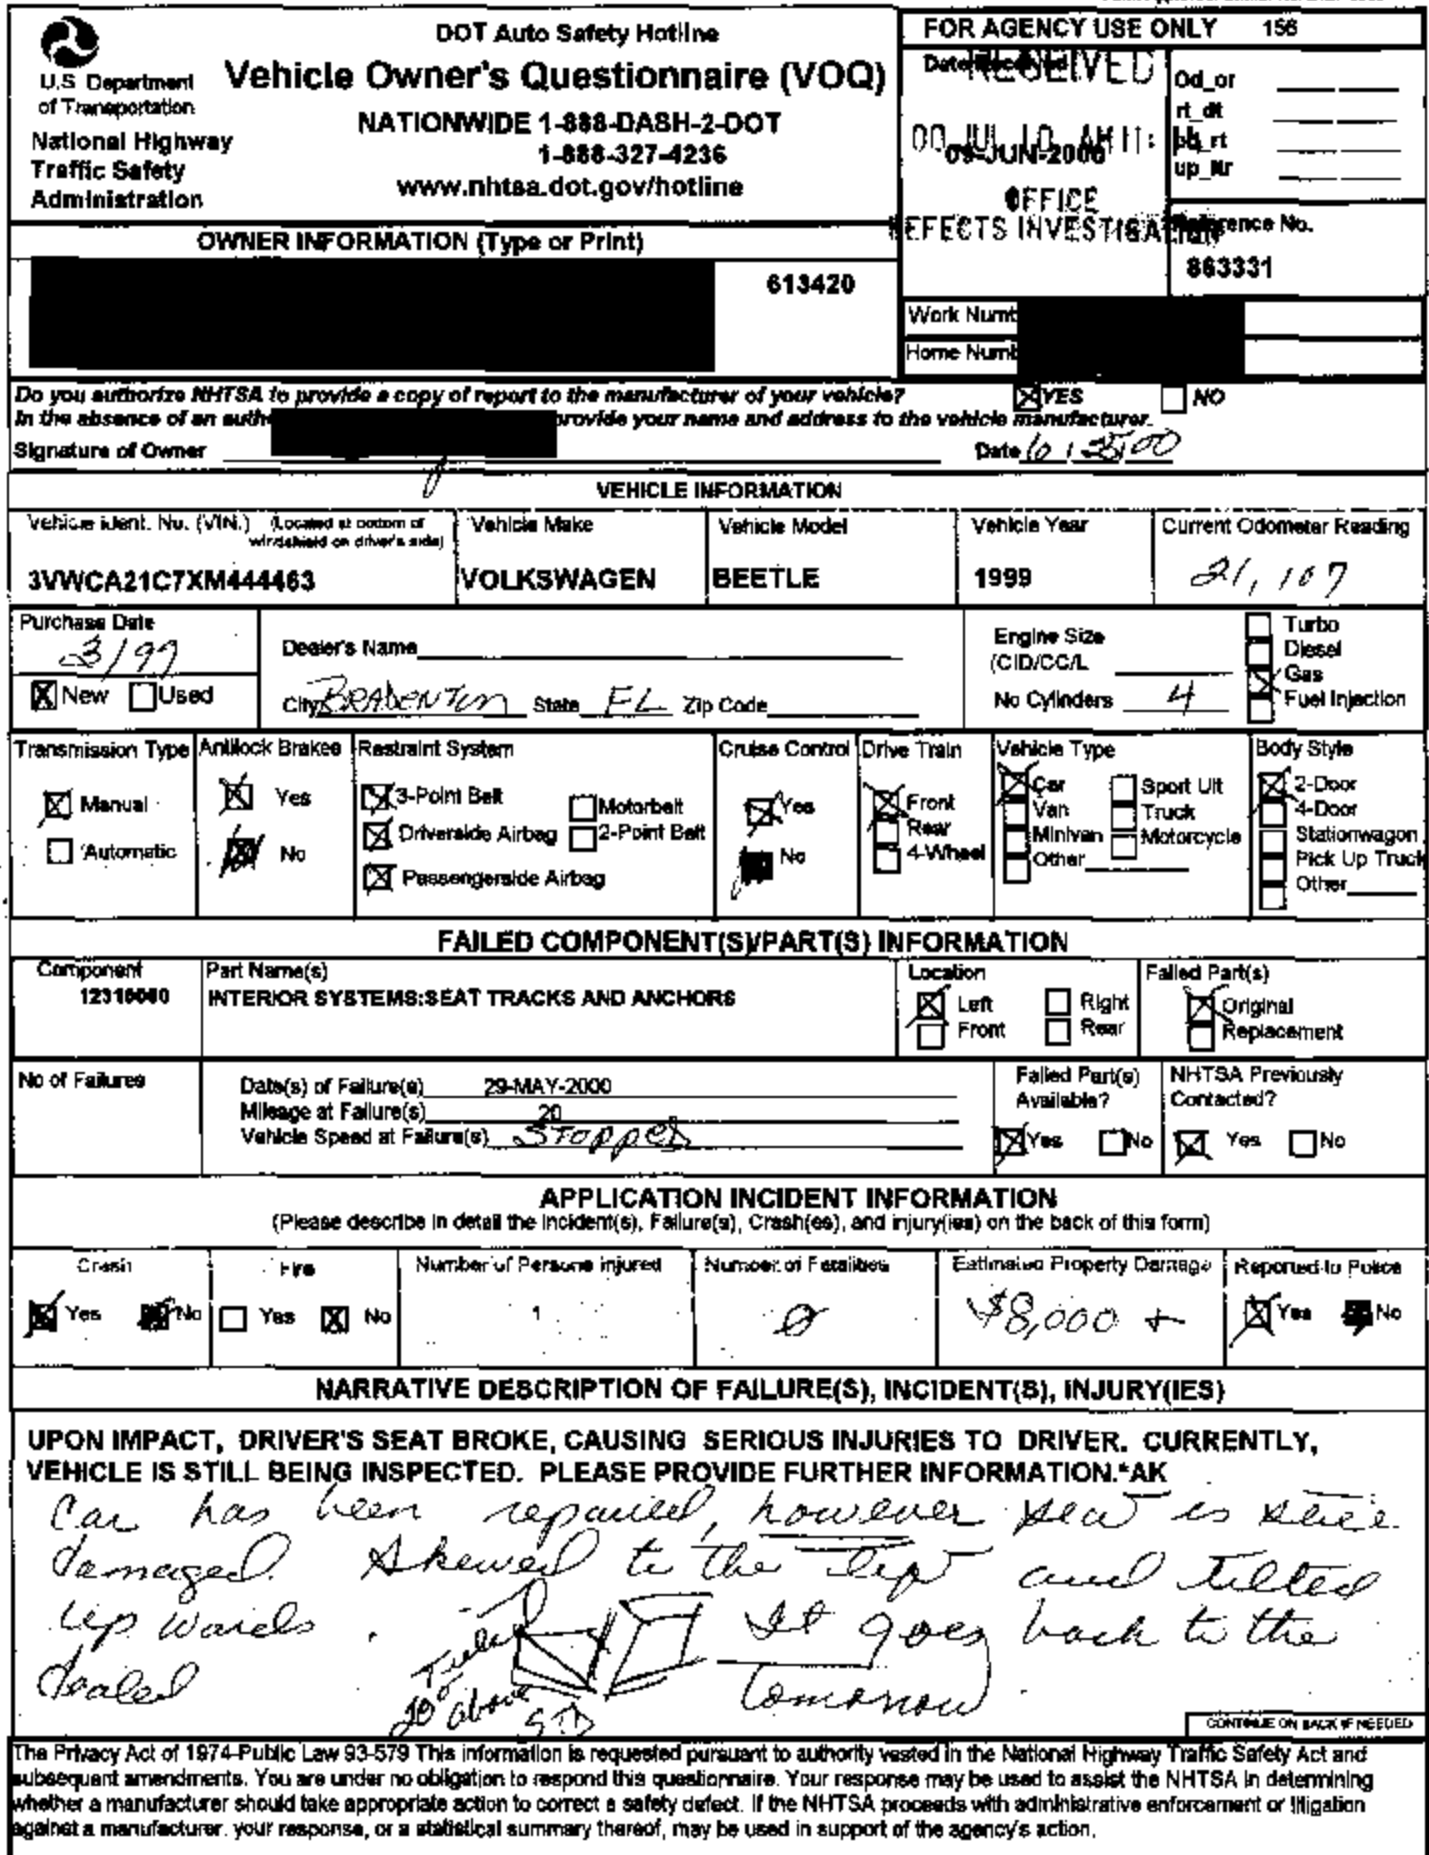 DOT Auto Safety Hotline
Vehicle Owner's Questionnaire (VOQ)
NATIONWIDE 1-888-DASH-2-DOT
1-888-327-4236
www.nhtsa.dot.gov/hotline
U.S. Department
of Transportation
National Highway
Traffic Safety
Administration
FOR AGENCY USE ONLY 156
Date Received
RECEIVED
00 JUL 10 AM 11:
09-JUN-2000
OFFICE
DEFECTS INVESTIGATION
Od_or
rt_dt
od_rt
up_ltr
Reference No.
863331
OWNER INFORMATION (Type or Print)
613420
Work Numb
Home Numb
Do you authorize NHTSA to provide a copy of report to the manufacturer of your vehicle? YES NO
In the absence of an autho provide your name and address to the vehicle manufacturer.
Signature of Owner Date
VEHICLE INFORMATION
Vehicle Ident. No. (VIN.) (Located at bottom of
windshield on driver's side)
3VWCA21C7XM444463
Vehicle Make
VOLKSWAGEN
Vehicle Model
BEETLE
Vehicle Year
1999
Current Odometer Reading
21,107
Purchase Date
3/99
New Used
Dealer's Name
City BRADENTON State FL Zip Code
Engine Size
(CID/CC/L
No Cylinders 4
Turbo
Diesel
Gas
Fuel Injection
Transmission Type
Manual
Automatic
Antilock Brakes
Yes
No
Restraint System
3-Point Belt
Driverside Airbag
Passengerside Airbag
Motorbelt
2-Point Belt
Cruise Control
Yes
No
Drive Train
Front
Rear
4-Wheel
Vehicle Type
Car
Van
Minivan
Other
Sport Ult
Truck
Motorcycle
Body Style
2-Door
4-Door
Stationwagon
Pick Up Truck
Other
FAILED COMPONENT(S)/PART(S) INFORMATION
Component
Part Name(s)
INTERIOR SYSTEMS:SEAT TRACKS AND ANCHORS
Location
Left Right
Front Rear
Failed Part(s)
Original
Replacement
No of Failures
Date(s) of Failure(s) 29-MAY-2000
Mileage at Failure(s) 20
Vehicle Speed at Failure(s) Stopped
Failed Part(s)
Available?
Yes No
NHTSA Previously
Contacted?
Yes No
APPLICATION INCIDENT INFORMATION
(Please describe in detail the Incident(s), Failure(s), Crash(es), and injury(ies) on the back of this form)
Crash
Yes No
Fire
Yes No
Number of Persons Injured
1
Number of Fatalities
0
Estimated Property Damage
$8,000 +
Reported to Police
Yes No
NARRATIVE DESCRIPTION OF FAILURE(S), INCIDENT(S), INJURY(IES)
UPON IMPACT, DRIVER'S SEAT BROKE, CAUSING SERIOUS INJURIES TO DRIVER. CURRENTLY,
VEHICLE IS STILL BEING INSPECTED. PLEASE PROVIDE FURTHER INFORMATION.*AK
Car has been repaired, however seat is still
damaged. Skewed to the left and tilted
upwards. It goes back to the
dealer tomorrow.
20° above
CONTINUE ON BACK IF NEEDED
The Privacy Act of 1974-Public Law 93-579 This information is requested pursuant to authority vested in the National Highway Traffic Safety Act and
subsequent amendments. You are under no obligation to respond this questionnaire. Your response may be used to assist the NHTSA in determining
whether a manufacturer should take appropriate action to correct a safety defect. If the NHTSA proceeds with administrative enforcement or litigation
against a manufacturer. your response, or a statistical summary thereof, may be used in support of the agency's action.